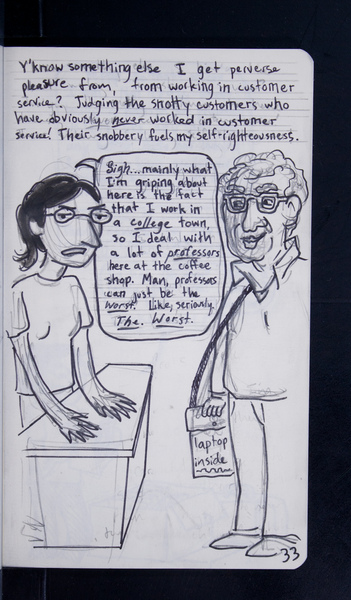 Y'know something else I get perverse
pleasure from, from working in customer
service? Judging the snotty customers who
have obviously never worked in customer
service! Their snobbery fuels my self-righteousness.
Sigh...mainly what
I'm griping about
here is the fact
that I work in
a college town,
so I deal with
a lot of professors
here at the coffee
shop. Man, professors
can just be the
worst. Like, seriously.
The. Worst.
laptop
inside
33